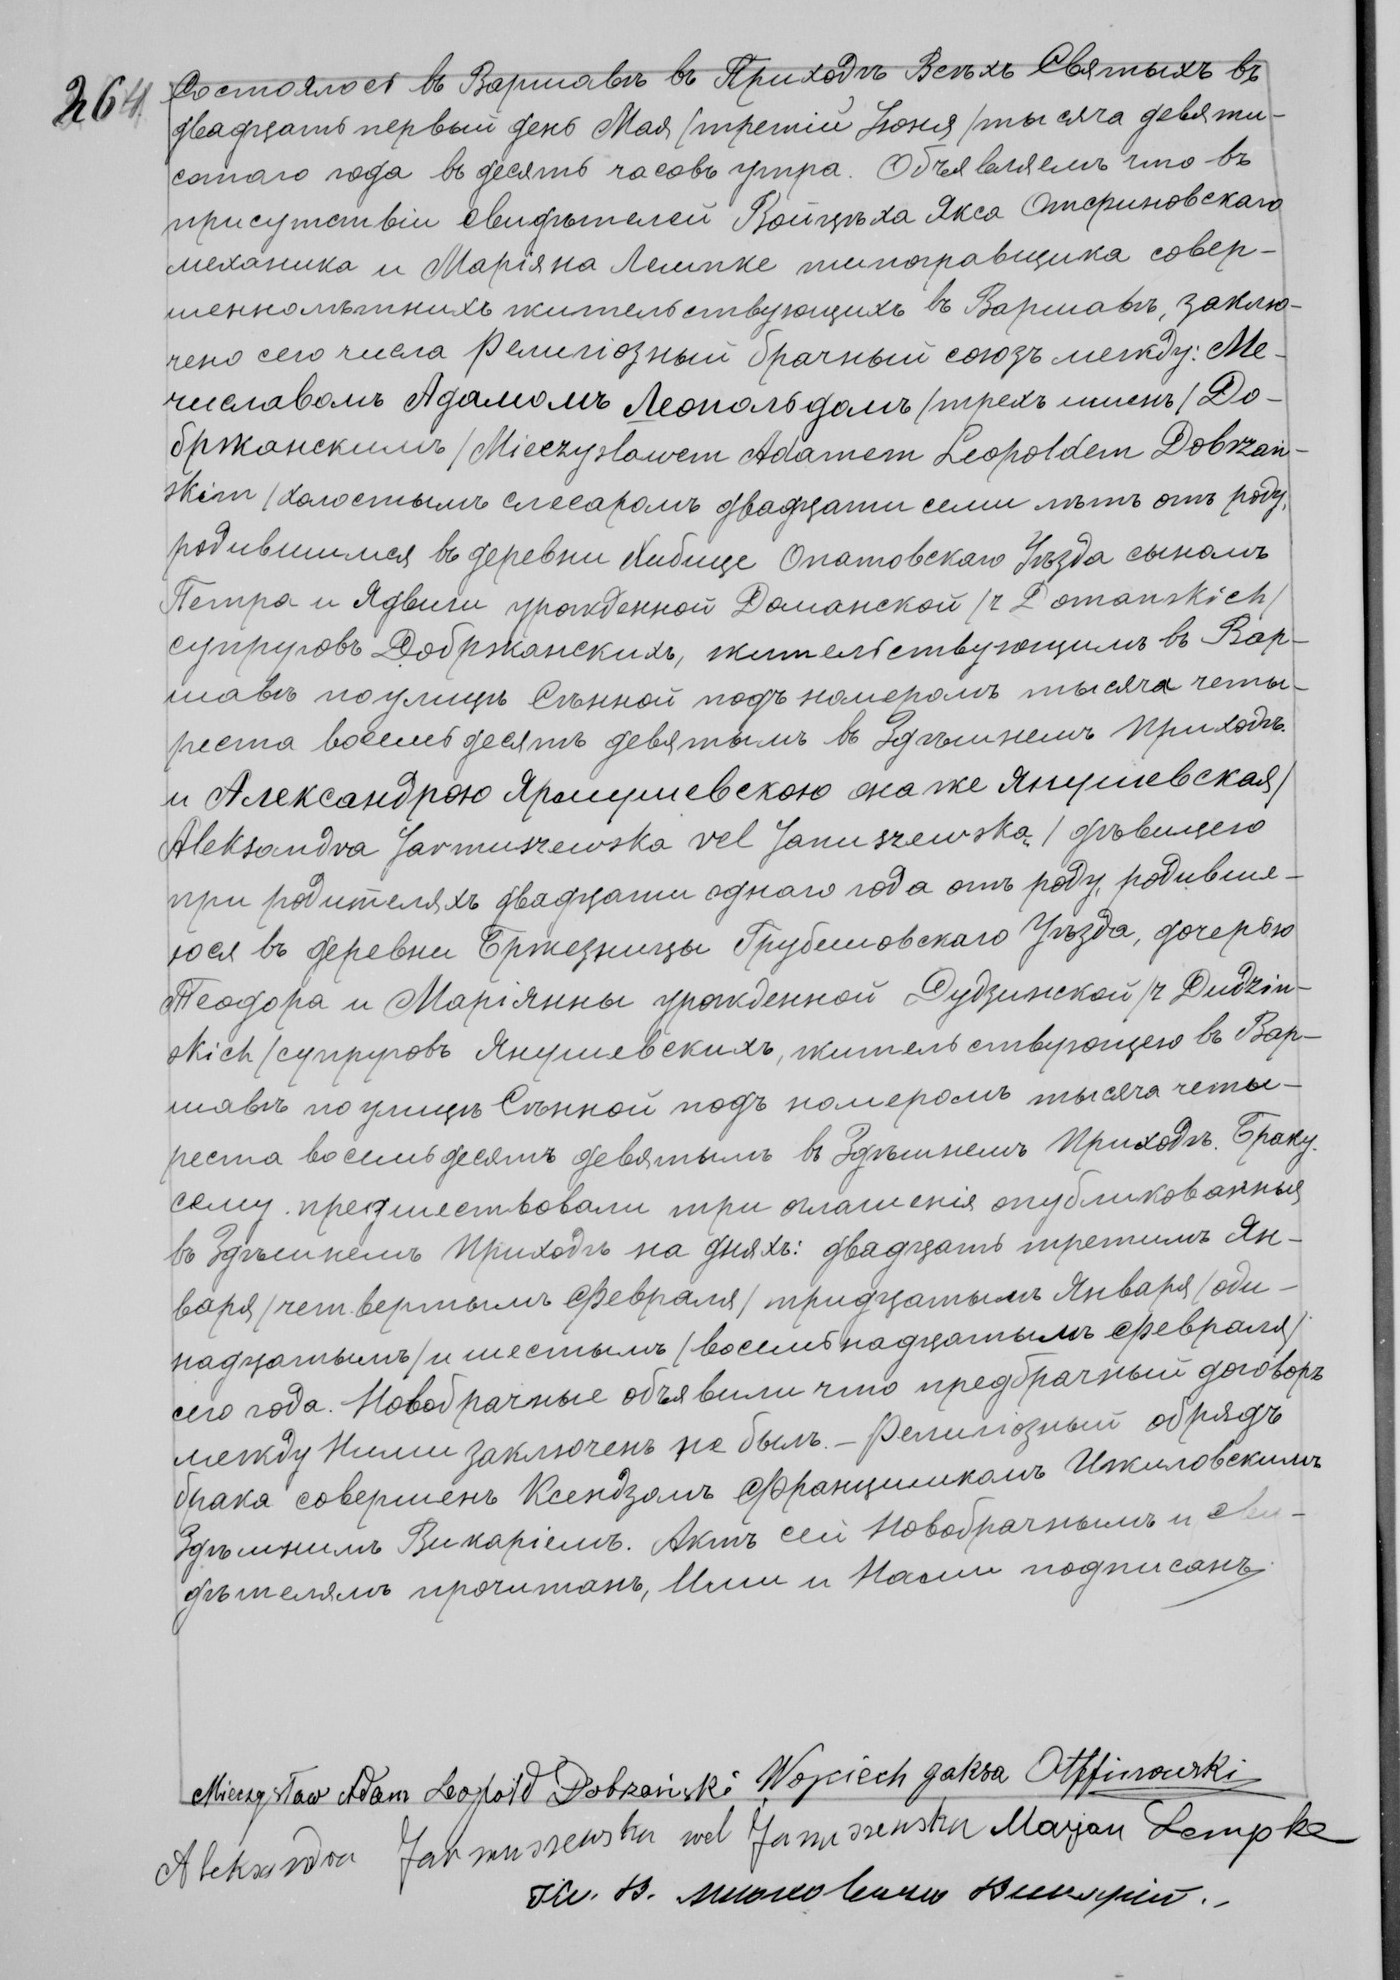 264.
Состоялось въ Варшавѣ въ Приходѣ Всѣхъ Святыхъ въ
двадцать первый день Мая /третій Іюня/ тысяча девяти-
сотаго года въ десять часовъ утра. Объявляемъ что въ
присутствіи свидѣтелей Войцѣха Якса Отфиновскаго
механика и Маріяна Лемпке типографщика совер-
шеннолѣтнихъ жительствующихъ въ Варшавѣ, заклю-
чено сего числа религіозный брачный союзъ между: Ме-
числавомъ Адамомъ Леопольдомъ /трехъ именъ/ До-
бржанскимъ /Mieczysławem Adamem Leopoldem Dobrzań-
skim/ холостымъ слесаромъ двадцати семи лѣтъ отъ роду,
родившимся въ деревни Хибице Опатовскаго Уѣзда сыномъ
Петра и Ядвиги урожденной Доманской /z Domańskich/
супруговъ Добржанскихъ, жительствующимъ въ Вар-
шавѣ по улицѣ Сѣнной подъ номеромъ тысяча четы-
реста восемьдесятъ девятымъ въ Здѣшнемъ Приходѣ.
и Александрою Ярмушевскою она же Янушевская/
Aleksandra Jarmuszewska vel Januszewska/ дѣвицею
при родителяхъ двадцати однаго года отъ роду, родивше-
юся въ деревни Бржезницы Грубешовскаго Уѣзда, дочерью
Теодора и Маріянны урожденной Дудзинской /z Dudziń-
skich/ супруговъ Янушевскихъ, жительствующею въ Вар-
шавѣ по улицѣ Сѣнной подъ номеромъ тысяча четы-
реста восемьдесятъ девятымъ въ Здѣшнемъ Приходѣ. Браку
сему предшествовали три оглашенія опубликованныя
въ Здѣшнемъ Приходѣ на дняхъ: двадцать третьимъ Ян-
варя /четвертымъ Февраля/ тридцатымъ Января /оди-
надцатымъ/ и шестымъ /восемьнадцатымъ Февраля/
сего года. Новобрачные объявили что предбрачный договоръ
между Ними заключенъ не былъ. – Религіозный обрядъ
брака совершенъ Ксендзомъ Францишкомъ Ижиловскимъ
Здѣшнимъ Викаріемъ. Актъ сей Новобрачнымъ и сви-
дѣтелямъ прочитанъ, Ими и Нами подписанъ.
Mieczysław Adam Leopold Dobrzański Wojciech Jaksa Otffinowski
Aleksandra Jarmuszewska vel Januszewska Marjan Lempke
Кс. В. Викарій. –